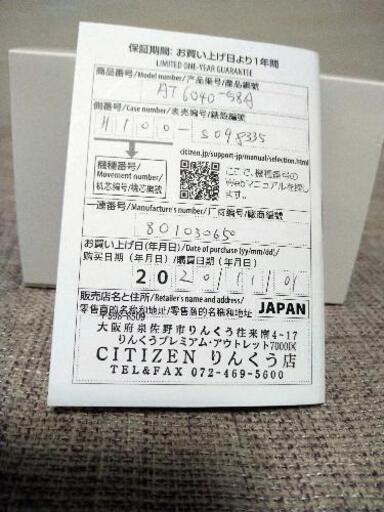 保証期間: お買い上げ日より1年間
LIMITED ONE-YEAR GUARANTEE
商品番号/Model number/产品编号/產品編號
AT6040-58A
側番号/Case number/表壳编号/錶殼編號
H100-S098335
機種番号/
Movement number/
机芯编号/機芯編號
citizen.jp/support-jp/manual/selection.html
ここで、機種番号の
Webマニュアルを探し
ます。
一連番号/Manufacture's number/厂商编号/廠商編號
801030650
お買い上げ日(年月日)/Date of purchase (yy/mm/dd)/
购买日期(年月日)/購買日期(年月日)
2020/11/01
販売店名と住所/Retailer's name and address/
零售商的名称和地址/零售商的名稱和地址
JAPAN
〒598-8509
大阪府泉佐野市りんくう往来南4-17
りんくうプレミアム・アウトレット7000区
CITIZEN りんくう店
TEL&FAX 072-469-5600